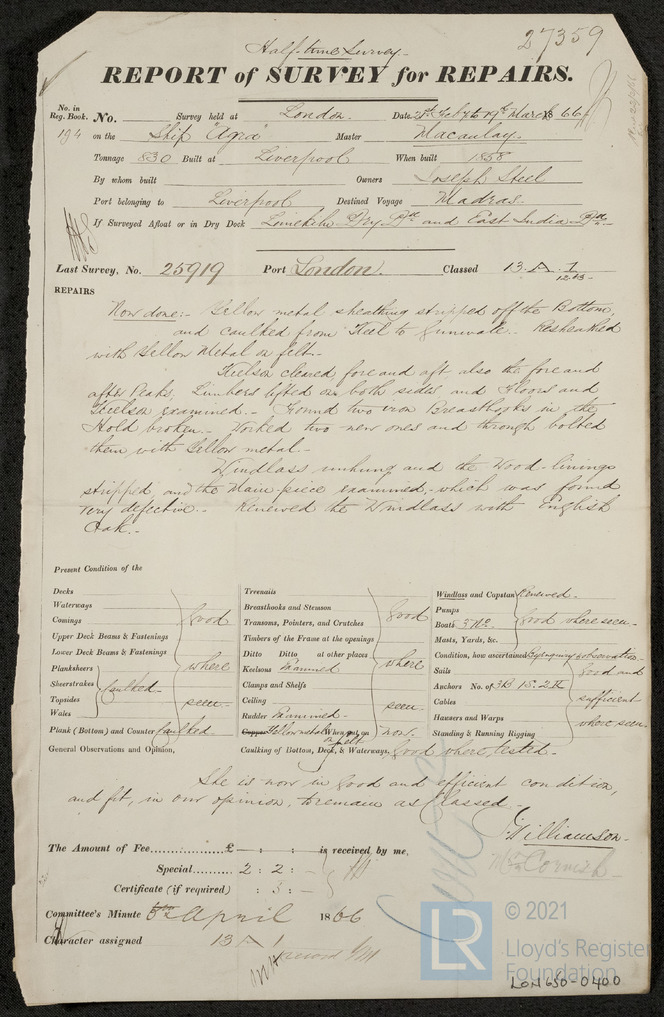 27359
Half-time Survey.
REPORT of SURVEY for REPAIRS.
No. in Reg. Book. No. Survey held at London. Date, March 66
194 on the Ship "Agra" Master Macaulay.
Tonnage 830 Built at Liverpool When built 1858
By whom built Owners Joseph Steel
Port belonging to Liverpool Destined Voyage Madras.
If Surveyed Afloat or in Dry Dock Limekiln Dry Dk and East India Dk
Last Survey, No. 25919 Port London. Classed 13 A 1
REPAIRS
Now done:- Yellow metal sheathing stripped off the Bottom,
and caulked from Keel to Gunwale. Resheathed
with Yellow Metal on felt.
Keelson cleared fore and aft also the fore and
after Peaks, Limbers lifted on both sides and Floors and
Keelson examined.- Found two iron Breasthooks in the
Hold broken.- Worked two new ones and through bolted
them with Yellow metal.-
Windlass unhung and the Wood-linings
stripped and the Main-piece examined, which was found
very defective.- Renewed the Windlass with English
Oak.-
Present Condition of the
Decks
Waterways
Comings good
Upper Deck Beams & Fastenings
Lower Deck Beams & Fastenings
Planksheers where
Sheerstrakes Caulked
Topsides seen.
Wales
Plank (Bottom) and Counter Caulked.
Treenails
Breasthooks and Stemson
Transoms, Pointers, and Crutches good
Timbers of the Frame at the openings
Ditto Ditto at other places
Keelsons Examined where
Clamps and Shelfs
Ceiling seen
Rudder Examined.
Copper Yellow metal When put on now.
on felt
Caulking of Bottom, Deck, & Waterways. Good where tested.
Windlass and Capstan Renewed.
Pumps
Boats good where seen.
Masts, Yards, &c.
Condition, how ascertained By enquiry & observation
Sails good and
Anchors No. of
Cables sufficient
Hawsers and Warps where seen.
Standing & Running Rigging
General Observations and Opinion,
She is now in good and efficient condition,
and fit, in our opinion, to remain as Classed.
J. Williamson.
Wm Cornish
The Amount of Fee £ - : - : - is received by me,
Special 2 : 2 : -
Certificate (if required) : 5 : -
Committee's Minute April 1866
Character assigned 13 A 1
LR
© 2021
Lloyd's Register
Foundation
LON650-0400